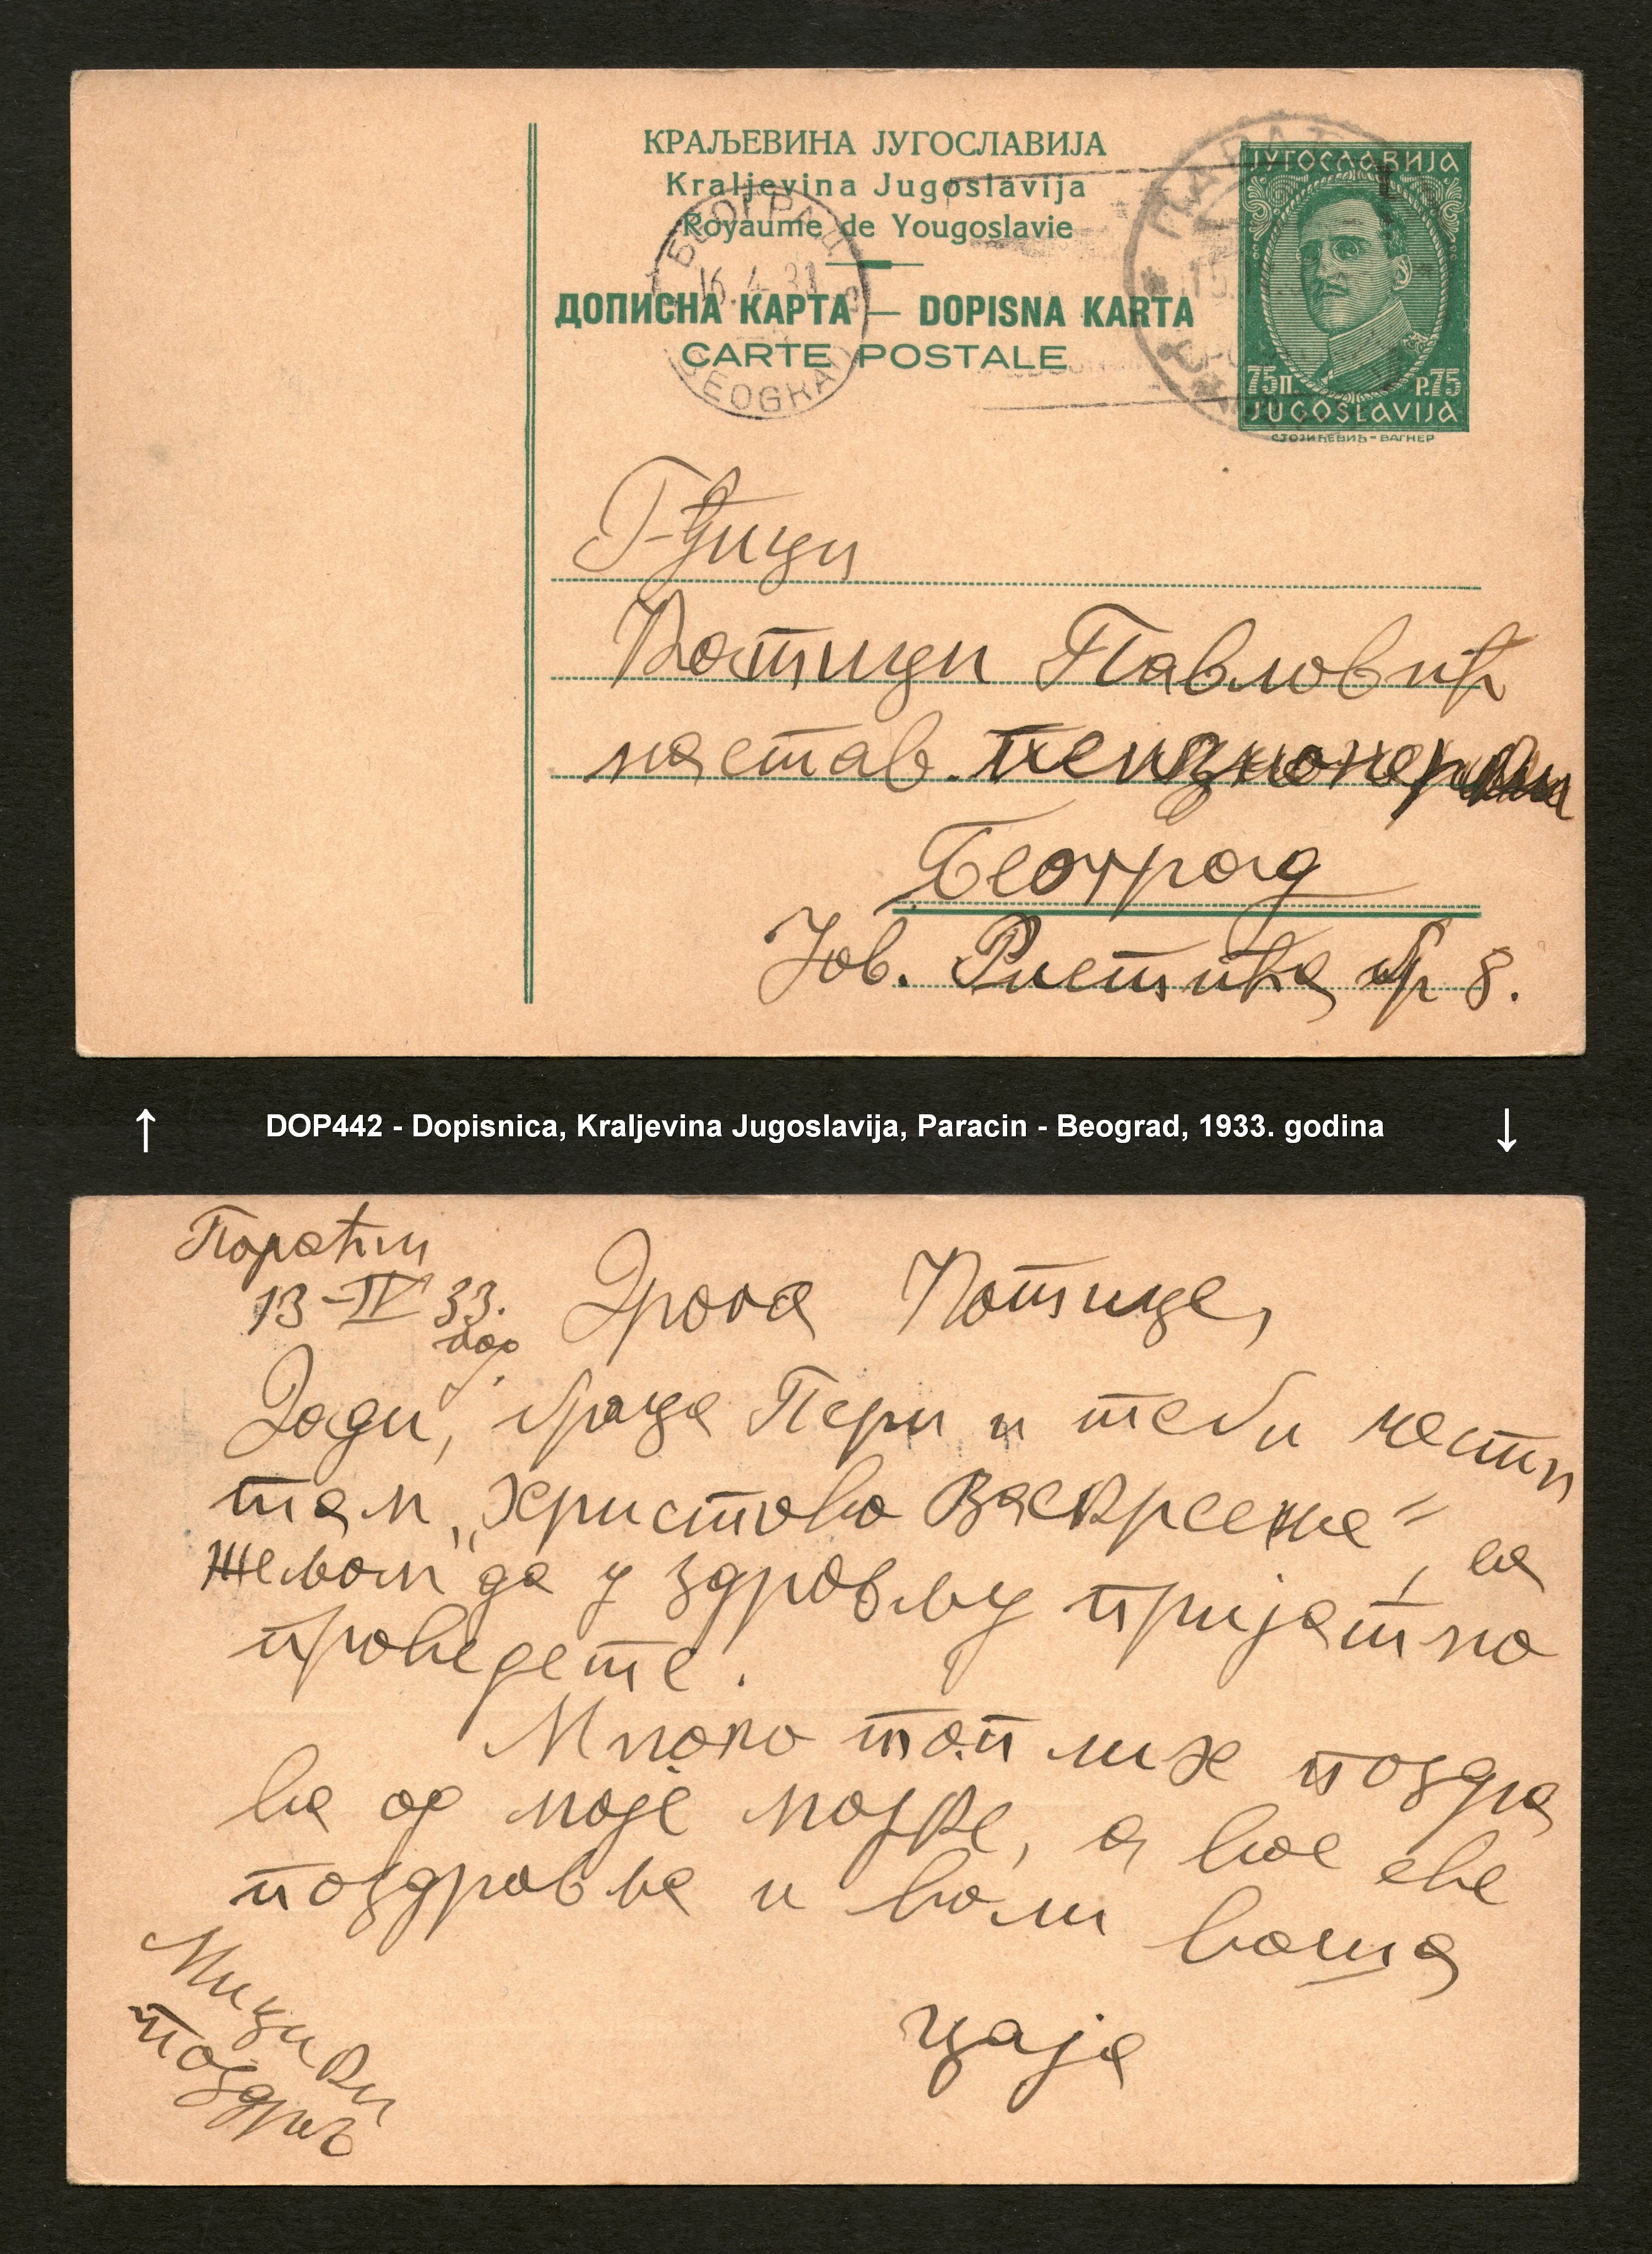 КРАЉЕВИНА ЈУГОСЛАВИЈА
Kraljevina Jugoslavija
Royaume de Yougoslavie
ДОПИСНА КАРТА — DOPISNA KARTA
CARTE POSTALE
БЕОГРАД
16.4.33
BEOGRAD
ЈУГОСЛАВИЈА
75п. P.75
JUGOSLAVIJA
СТОЈИЋЕВИЋ-ВАГНЕР
Г-ђици
Катици Павловић
настав. пензионер
Београд
Јов. Ристића бр 8.
↑ DOP442 - Dopisnica, Kraljevina Jugoslavija, Paracin - Beograd, 1933. godina ↓
Параћин
13-IV 33.
Драга Катице,
браца Пери и теби чести
там „Христово Васкрсење“, са
жељом да у здрављу пријатно
проведете.
Много топлих поздра
ва од моје мајке, а вас све
поздравља и воли ваша
цаја
Мицики
поздрав